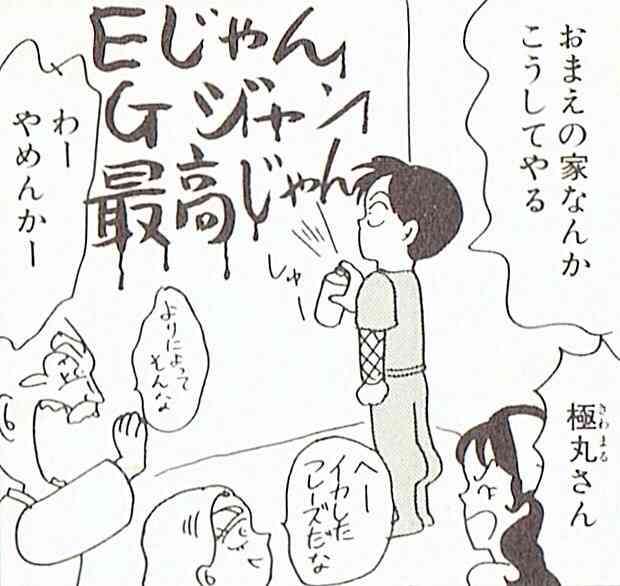 おまえの家なんか
こうしてやる
Eじゃん
Gジャン
最高じゃん
わー
やめんかー
しゅー
よりによって
そんな
極丸さん
きわまる
へー
イカした
フレーズだな